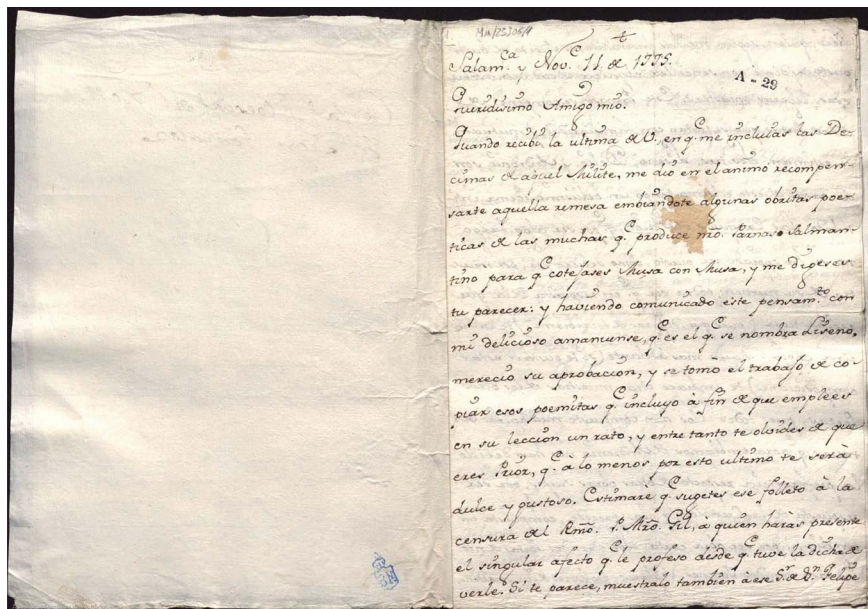 Mss/23305/9
+
Salam.ca y Nov.e 11 de 1775.
A - 29
Queridisimo Amigo mio.
Quando recibi la ultima de V., en q.e me incluías las De-
cimas de aquel Milite, me dió en el animo recompen-
sarte aquella remesa embiandote algunas obritas poe-
ticas de las muchas q.e produce nro. Parnaso Salman-
tino para q.e cotejases Musa con Musa, y me digeses
tu parecer: y haviendo comunicado este pensam.to con
mi delicioso amanuense, q.e es el q.e se nombra Liseno,
mereció su aprobacion, y se tomó el trabajo de co-
piar esos poemitas q.e incluyo à fin de que emplees
en su leccion un rato, y entre tanto te olvides de que
eres Prior, q.e à lo menos por esto ultimo te serà
dulce y gustoso. Estimarè q.e sugetes ese folleto à la
censura del Rmo. P. Mro. Gil, à quien haràs presente
el singular afecto q.e le profeso desde q.e tuve la dicha de
verle. Si te parece, muestralo tambien à ese S.r de D.n Felipe